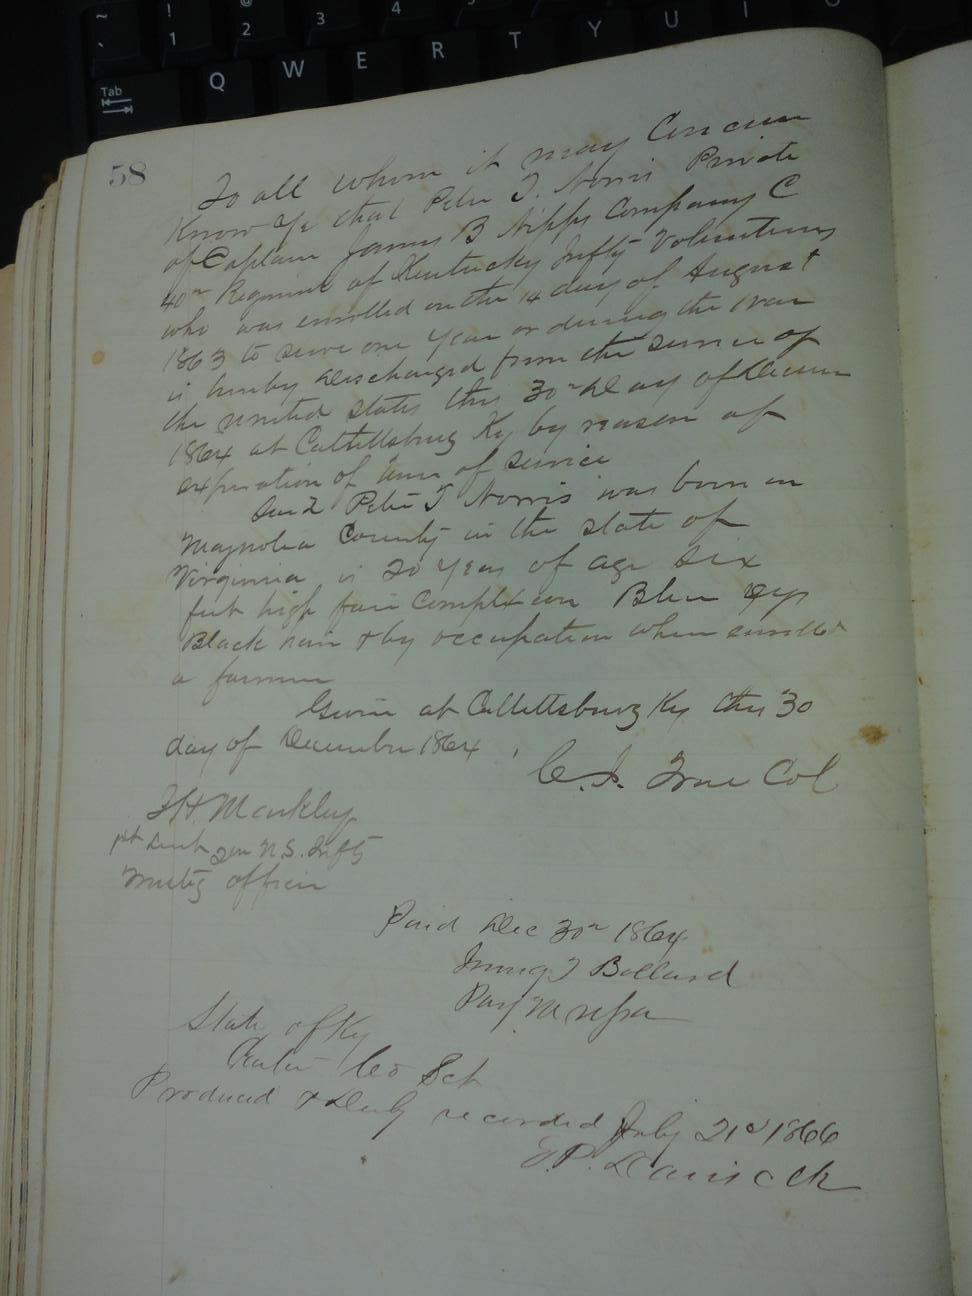 ~ ! @
` 1 2 3 4 5
Tab Q W E R T Y U I O
58
To all whom it may Concern
Know Ye that Peter T. Norris Private
of Captain James B Nipps Company C
40th Regiment of Kentucky Infty Volunteers
who was enrolled on the 14 day of August
1863 to serve one year or during the war
is hereby discharged from the service of
the united states this 30th day of Decem
1864 at Cattettsburg Ky by reason of
expiration of term of service
Said Peter T Norris was born in
Magnolia County in the state of
Virginia is 20 years of age six
feet high fair complexion Blue eyes
Black hair & by occupation when enrolled
a farmer
Given at Cattettsburg Ky this 30
day of December 1864
C. J. True Col
Markley
1st Lieut Infty
Mustg officer
Paid Dec 30th 1864
T Bollard
Pay M USA
State of Ky
Carter Co Sct
Produced & Duly recorded July 21st 1866